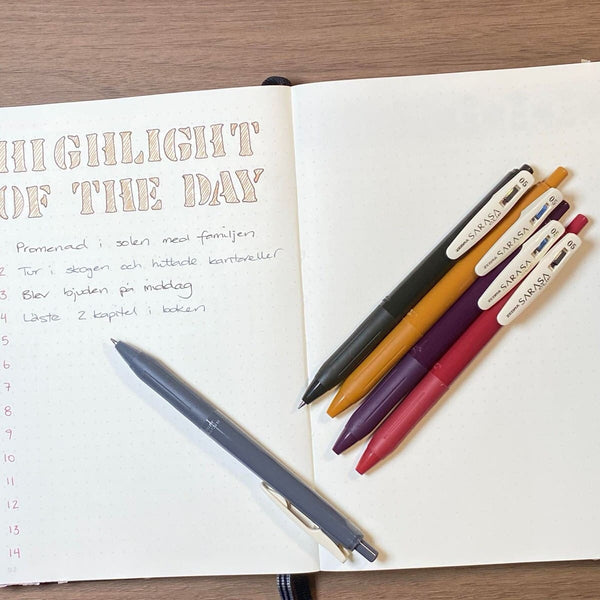 HIGHLIGHT
OF THE DAY
Promenad i solen med familjen
2 Tur i skogen och hittade kantareller
3 Blev bjuden på middag
4 Läste 2 kapitel i boken
5
6
7
8
9
10
11
12
13
14
ZEBRA SARASA 05
ZEBRA SARASA 05
ZEBRA SARASA 05
ZEBRA SARASA 05